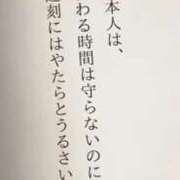 本人は、
わる時間は守らないのに
刻にはやたらとうるさい